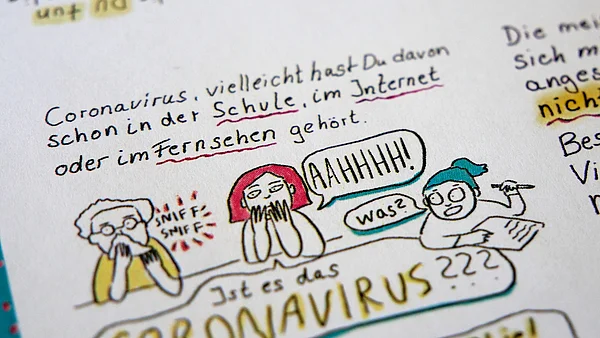 du
und
Coronavirus, vielleicht hast Du davon
schon in der Schule, im Internet
oder im Fernsehen gehört.
Die mei
sich m
anges
nicht
Bes
Vi
SNIFF
SNIFF
AAHHHH!
was?
Ist es das
CORONAVIRUS???
CORONAVIRUS